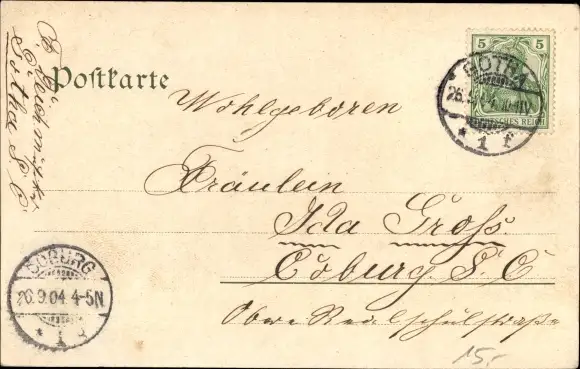 Postkarte
Wohlgeboren
Fräulein
Ida Gross.
Coburg. S. C
Obere Realschulstraße
15.-
Gotha S. C
5 5
DEUTSCHES REICH
GOTHA
26.9.04
* 1 f
COBURG
26.9.04 4-5N
* 1